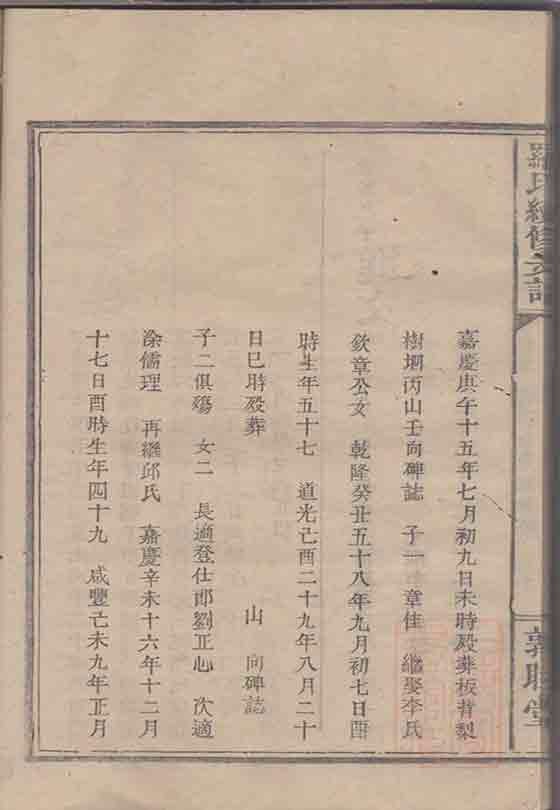 羅氏續修支譜
敦睦堂
嘉慶庚午十五年七月初九日未時歿葬板背梨
樹堋丙山壬向碑誌 子一 章佳 繼娶李氏
欽章公女 乾隆癸丑五十八年九月初七日酉
時生年五十七 道光己酉二十九年八月二十
日巳時歿葬 山 向碑誌
子二俱殤 女二 長適登仕郎劉正心 次適
涂儒理 再繼邱氏 嘉慶辛未十六年十二月
十七日酉時生年四十九 咸豐己未九年正月